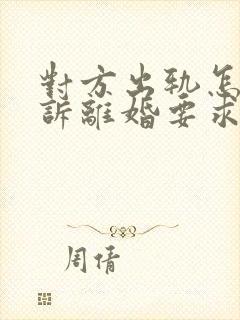 對方出軌怎
訴離婚要求
周倩